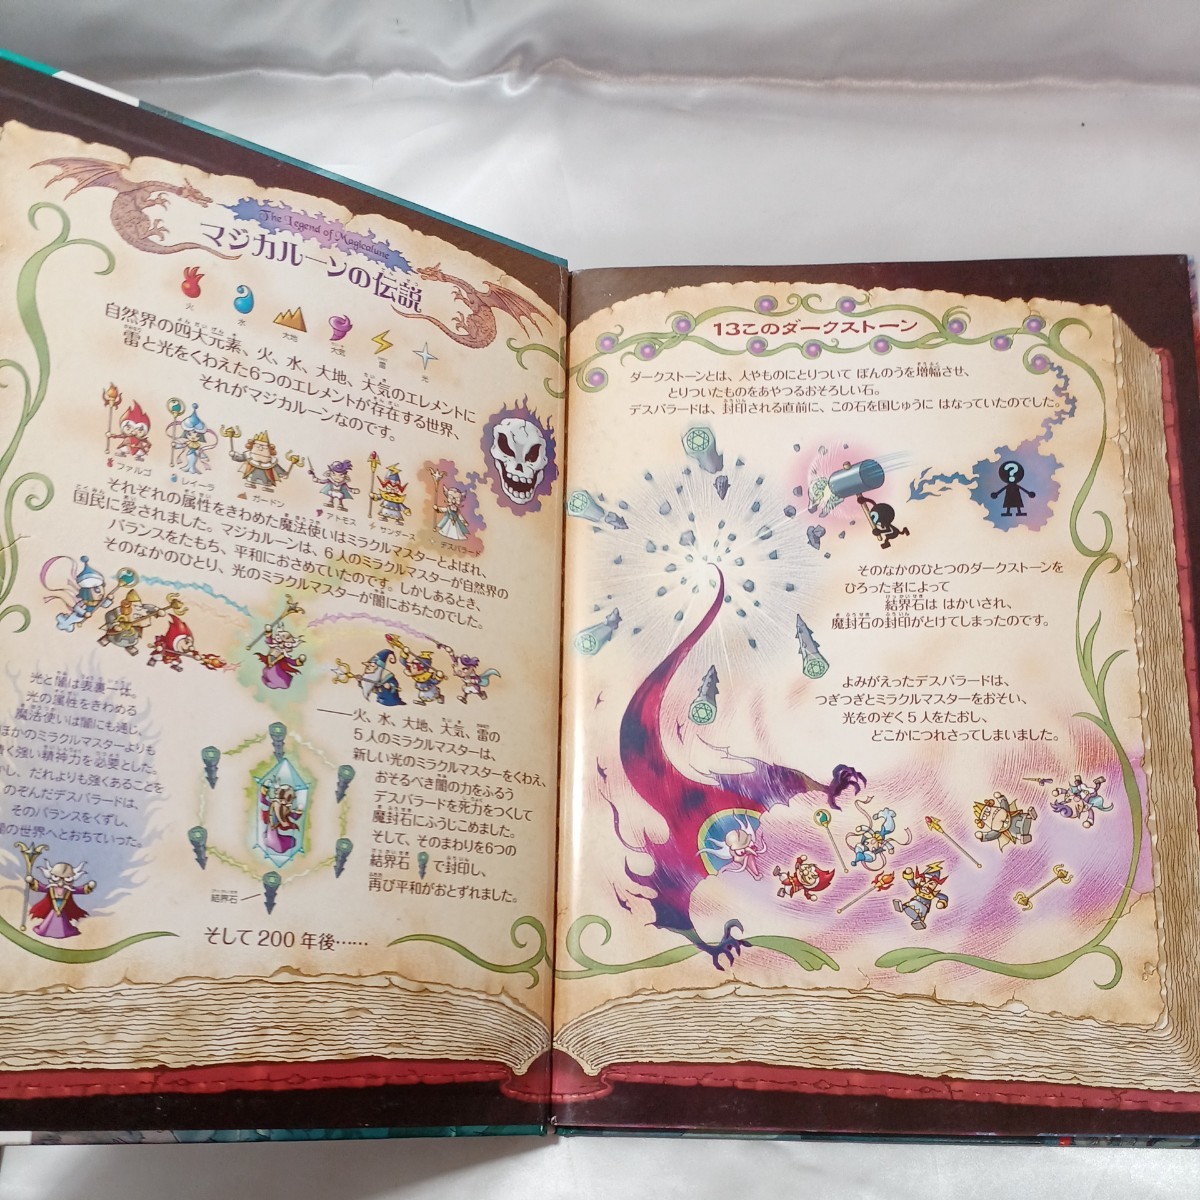 The Legend of Magicalune
マジカルーンの伝説
火
水
大地
大気
雷
光
自然界の四大元素、火、水、大地、大気のエレメントに
雷と光をくわえた6つのエレメントが存在する世界、
それがマジカルーンなのです。
ファルゴ
レイーラ
ガードン
アトモス
サンダース
デスパラード
それぞれの属性をきわめた魔法使いはミラクルマスターとよばれ、
国民に愛されました。マジカルーンは、6人のミラクルマスターが自然界の
バランスをたもち、平和におさめていたのです。しかしあるとき、
そのなかのひとり、光のミラクルマスターが闇におちたのでした。
光と闇は表裏一体。
光の属性をきわめる
魔法使いは闇にも通じ、
ほかのミラクルマスターよりも
く強い精神力を必要とした。
し、だれよりも強くあることを
のぞんだデスパラードは、
そのバランスをくずし、
の世界へとおちていった。
──火、水、大地、大気、雷の
5人のミラクルマスターは、
新しい光のミラクルマスターをくわえ、
おそるべき闇の力をふるう
デスパラードを死力をつくして
魔封石にふうじこめました。
そして、そのまわりを6つの
結界石で封印し、
再び平和がおとずれました。
結界石
そして200年後……
13このダークストーン
ダークストーンとは、人やものにとりついて ぼんのうを増幅させ、
とりついたものをあやつるおそろしい石。
デスパラードは、封印される直前に、この石を国じゅうに はなっていたのでした。
?
?
そのなかのひとつのダークストーンを
ひろった者によって
結界石は はかいされ、
魔封石の封印がとけてしまったのです。
よみがえったデスパラードは、
つぎつぎとミラクルマスターをおそい、
光をのぞく5人をたおし、
どこかにつれさってしまいました。